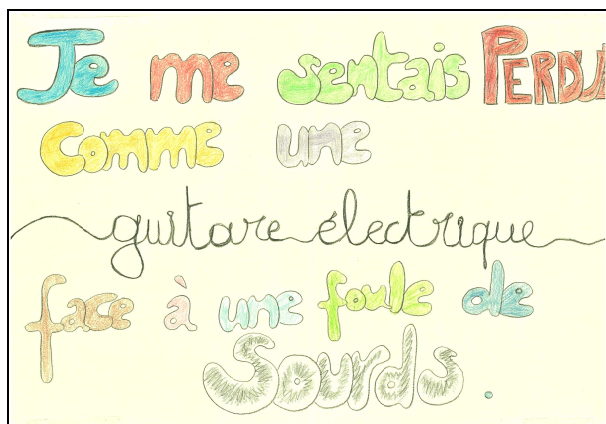 Je me sentais PERDU
Comme une
guitare électrique
face à une foule de
Sourds.